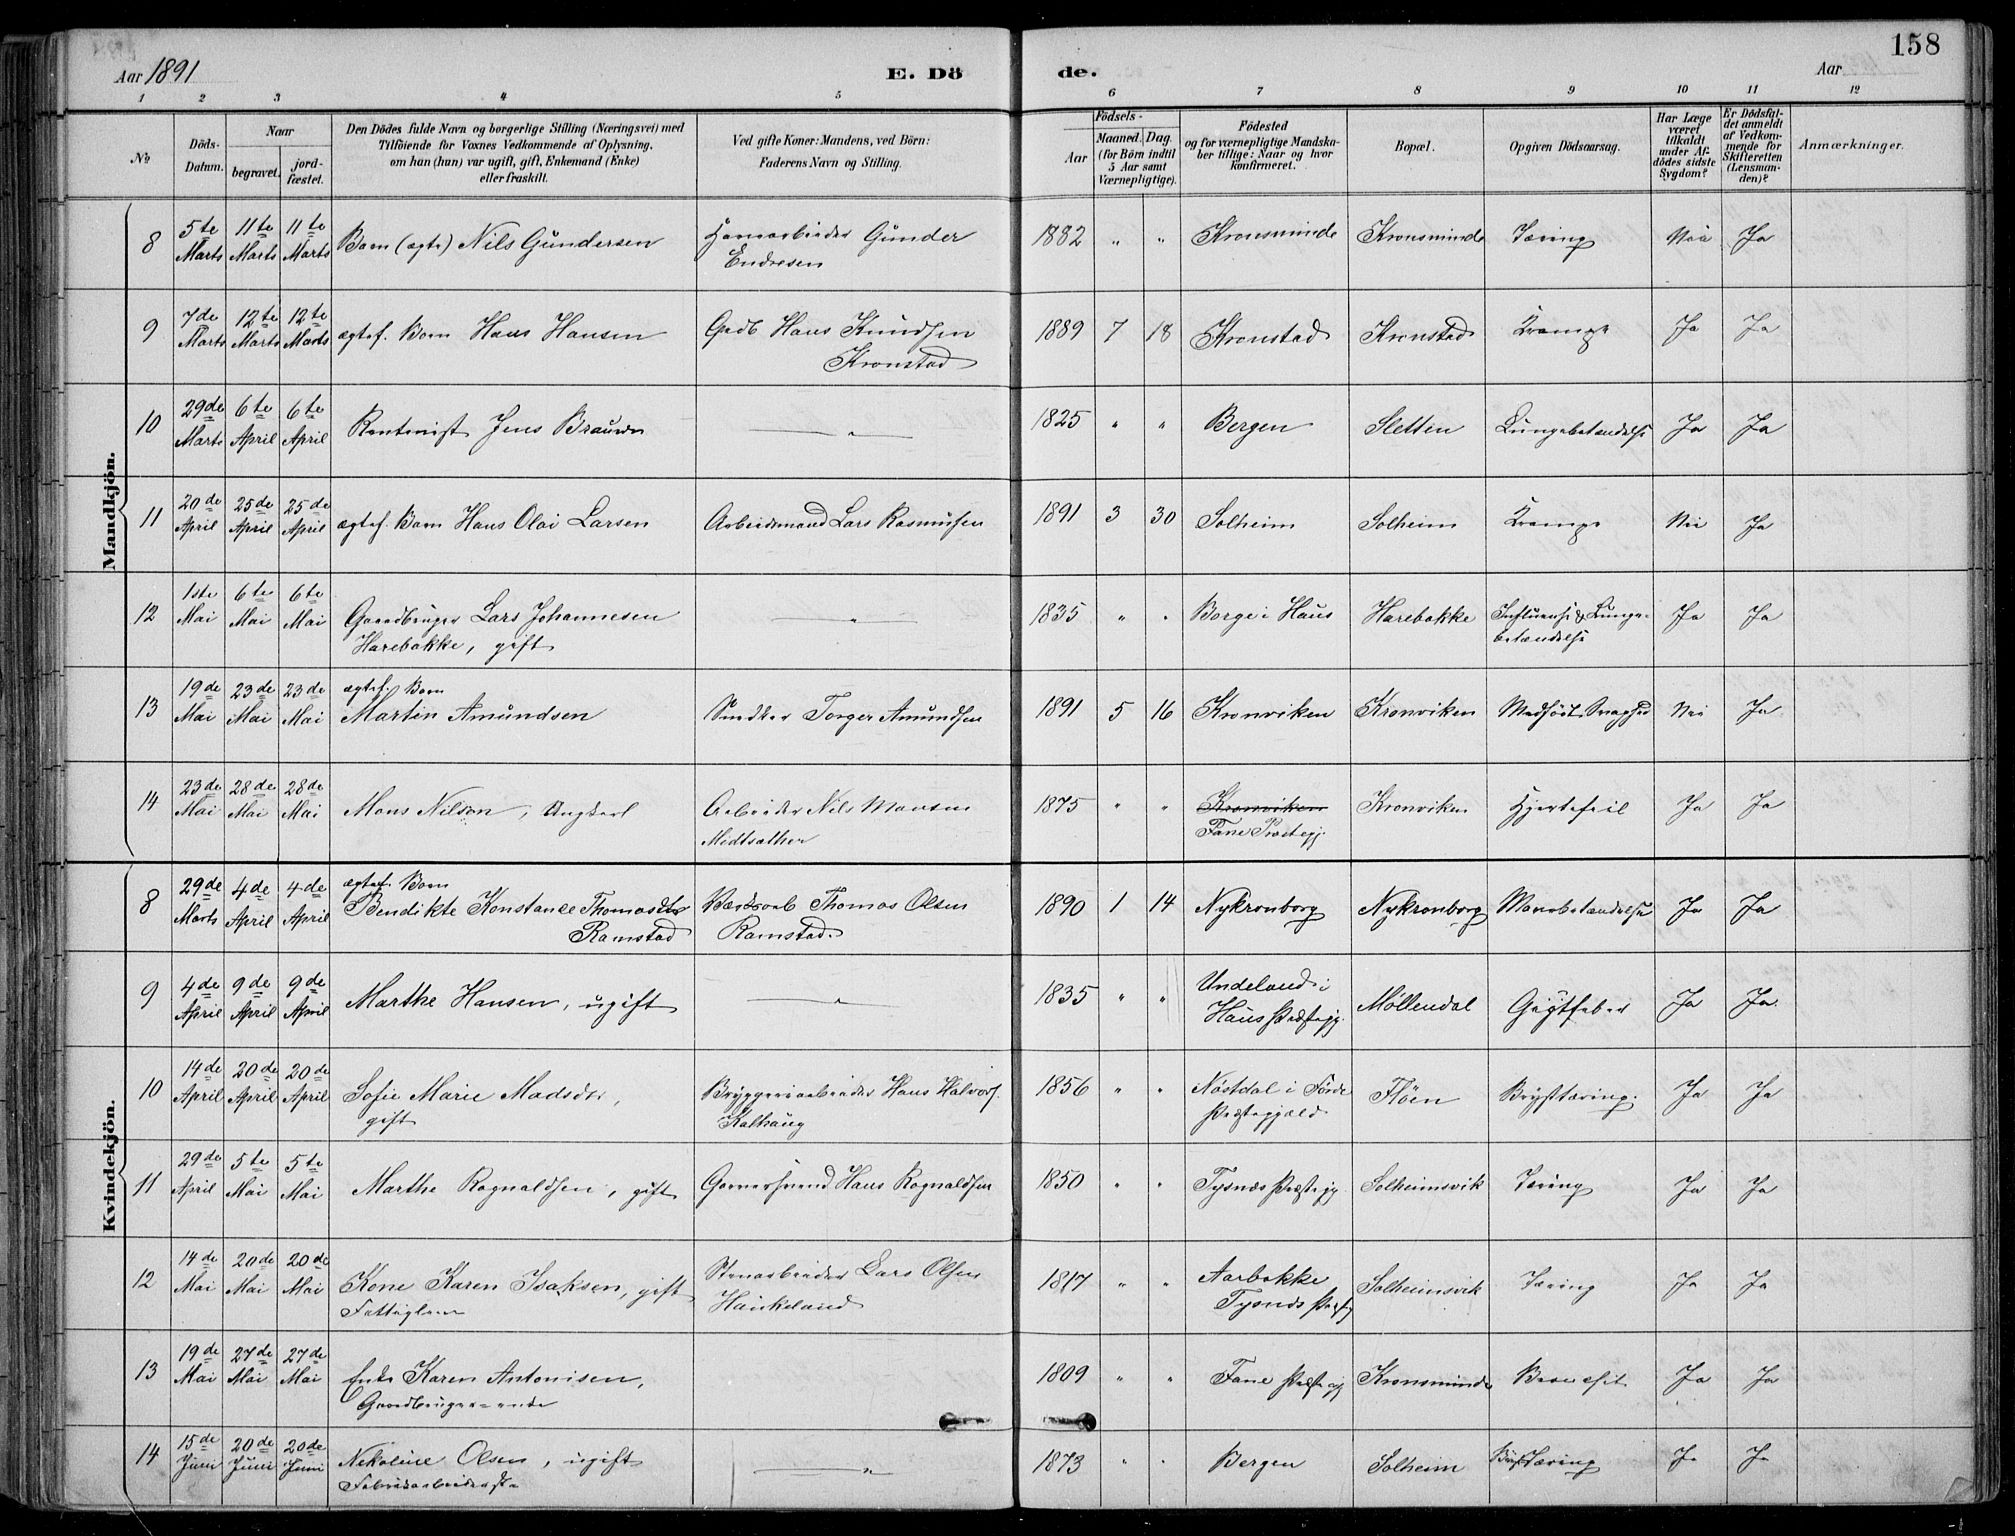 158
Aar 1891
E. Dö
de.
Aar
1 2 3 4 5 6 7 8 9 10 11 12
No
Döds-Datum.
Naar
begravet.
jord-fæstet.
Den Dödes fulde Navn og borgerlige Stilling (Næringsvei) med
Tilföiende for Voxnes Vedkommende af Oplysning,
om han (hun) var ugift, gift, Enkemand (Enke)
eller fraskilt.
Ved gifte Koner: Mandens, ved Börn:
Faderens Navn og Stilling.
Födsels-
Aar
Maaned. Dag.
(for Börn indtil
5 Aar samt
Værnepligtige).
Födested
og for værnepligtige Mandska-
ber tillige: Naar og hvor
konfirmeret.
Bopæl.
Opgiven Dödsaarsag.
Har Læge
været
tilkaldt
under Af-
dödes sidste
Sygdom?
Er Dödsfal-
det anmeldt
af Vedkom-
mende for
Skifteretten
(Lensman-
den)?
Anmærkninger.
Mandkjön.
8 5te Marts 11te Marts 11te Marts Barn (ægte) Nils Gundersen Gunder Endresen 1882 " " Kronsminde Kronsminde Tæring Nei Ja
9 7de Marts 12te Marts 12te Marts ægtef. Barn Hans Hansen Gbd. Hans Knudsen Kronstad 1889 7 18 Kronstad Kronstad Krampe Ja Ja
10 29de Marts 6te April 6te April Rentenist Jens Brauun " 1825 " " Bergen Sletten Lungebetændelse Ja Ja
11 20de April 25de April 25de April ægtef. Barn Hans Olai Larsen Arbeidsmand Lars Rasmusen 1891 3 30 Solheim Solheim Krampe Nei Ja
12 1ste Mai 6te Mai 6te Mai Gaardbruger Lars Johannesen Harebakke, gift " 1835 " " Borge i Haus Harebakke Influensa & Lungebetændelse Ja Ja
13 19de Mai 23de Mai 23de Mai ægtef. Barn Martin Amundsen Snedker Torger Amundsen 1891 5 16 Kronviken Kronviken Medfödt Svaghed Nei Ja
14 23de Mai 28de Mai 28de Mai Mons Nilsen, Ungkarl Arbeider Nils Monsen Midtsæther 1875 " " Kronviken Fane Præstegj. Kronviken Hjertefeil Ja Ja
Kvindekjön.
8 29de Marts 4de April 4de April ægtef. Barn Bendikte Konstance Thomasdtr Ramstad Thomas Olsen Ramstad. 1890 1 14 Nykronborg Nykronborg Mavebetændelse Ja Ja
9 4de April 9de April 9de April Marthe Hansen, ugift " 1835 " " Undeland i Haus Præstegj. Möllendal Gigtfeber Ja Ja
10 14de April 20de April 20de April Sofie Marie Madsdtr, gift Bryggeriarbeider Hans Halvors. Kalhaug 1856 " " Nöstdal i Förde Præstegjæld Flöen Brysttæring Ja Ja
11 29de April 5te Mai 5te Mai Marthe Rognaldsen, gift Garversvend Hans Rognaldsen 1850 " " Tysnæs Præstegj Solheimsvik Tæring Ja Ja
12 14de Mai 20de Mai 20de Mai Kone Karen Isaksen, gift Fattiglem Stenarbeider Lars Olsen Haukeland 1817 " " Aarbakke Tysnæs Præstg Solheimsvik Tæring Ja Ja
13 19de Mai 27de Mai 27de Mai Enke Karen Antonisen, Gaardbruger-enke 1809 " " Fane Præstegj Kronsminde Ja Ja
14 15de Juni 20de Juni 20de Juni Nikoline Olsen, ugift Fabrikarbeiderske " 1873 " " Bergen Solheim Brysttæring Ja Ja